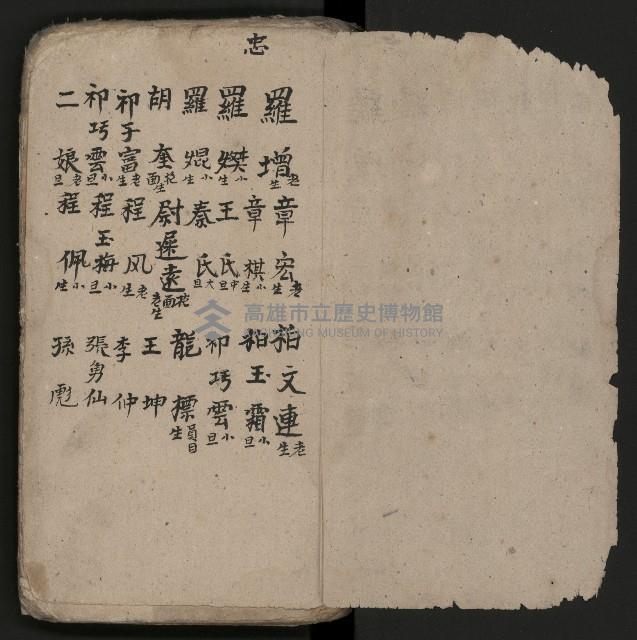 忠
羅增老生 章宏老生 拍文連老生
羅燦小生 章棋小生 柏玉霜小旦
羅焜小生 王氏中旦 祁巧雲小旦
胡奎花面生 秦氏大旦 龍標員目生
祁子富老生 尉遲遠花面老生 王坤
祁巧雲小旦 程风老生 李仲
二娘老旦 程玉梅小旦 張勇仙
程佩小生 孫彪
高雄市立歷史博物館
KAOHSIUNG MUSEUM OF HISTORY